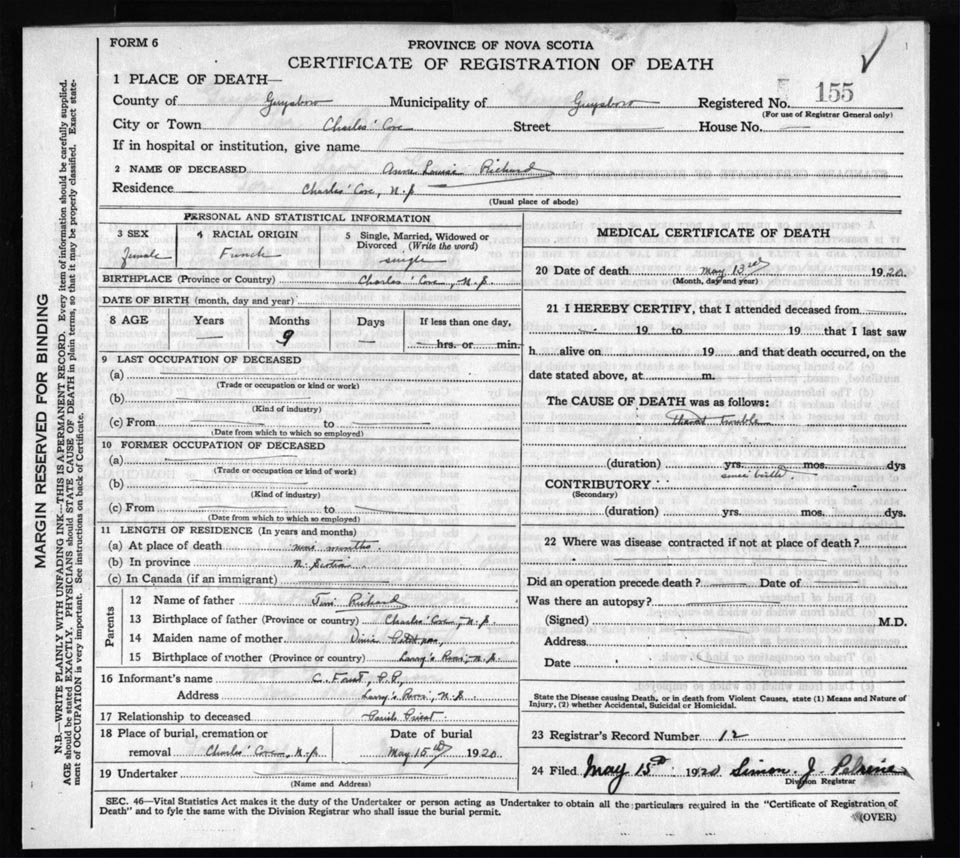 FORM 6
PROVINCE OF NOVA SCOTIA
CERTIFICATE OF REGISTRATION OF DEATH
1 PLACE OF DEATH—
County of Guysboro Municipality of Guysboro Registered No. 155
(For use of Registrar General only)
City or Town Charles' Cove Street House No. —
If in hospital or institution, give name
2 NAME OF DECEASED Anne Louise Richard
Residence Charles' Cove, N.S.
(Usual place of abode)
PERSONAL AND STATISTICAL INFORMATION
3 SEX female
4 RACIAL ORIGIN French
5 Single, Married, Widowed or Divorced (Write the word) single
BIRTHPLACE (Province or Country) Charles' Cove, N.S.
DATE OF BIRTH (month, day and year)
8 AGE Years — Months 9 Days — If less than one day, hrs. or min.
9 LAST OCCUPATION OF DECEASED
(a)
(Trade or occupation or kind or work)
(b)
(Kind of industry)
(c) From to
(Date from which to which so employed)
10 FORMER OCCUPATION OF DECEASED
(a)
(Trade or occupation or kind of work)
(b)
(Kind of industry)
(c) From to
(Date from which to which so employed)
11 LENGTH OF RESIDENCE (In years and months)
(a) At place of death nine months.
(b) In province N. Scotia
(c) In Canada (if an immigrant)
Parents
12 Name of father Richard
13 Birthplace of father (Province or country) Charles' Cove, N.S.
14 Maiden name of mother
15 Birthplace of mother (Province or country) Larry's River, N.S.
16 Informant's name C. Forest, P.P.,
Address Larry's River, N.S.
17 Relationship to deceased Parish Priest
18 Place of burial, cremation or removal Charles' Cove, N.S.
Date of burial May 15th 1920
19 Undertaker
(Name and Address)
MEDICAL CERTIFICATE OF DEATH
20 Date of death May 13rd 1920.
(Month, day and year)
21 I HEREBY CERTIFY, that I attended deceased from
19 to 19 that I last saw
h alive on 19 and that death occurred, on the
date stated above, at m.
The CAUSE OF DEATH was as follows:
Heart trouble
(duration) yrs. mos. dys
since birth.
CONTRIBUTORY
(Secondary)
(duration) yrs. mos. dys.
22 Where was disease contracted if not at place of death?
Did an operation precede death? Date of
Was there an autopsy?
(Signed) M.D.
Address
Date
State the Disease causing Death, or in death from Violent Causes, state (1) Means and Nature of
Injury, (2) whether Accidental, Suicidal or Homicidal.
23 Registrar's Record Number 12
24 Filed May 15th 1920 Simon J. Pelrine
Division Registrar
SEC. 46—Vital Statistics Act makes it the duty of the Undertaker or person acting as Undertaker to obtain all the particulars required in the "Certificate of Registration of
Death" and to fyle the same with the Division Registrar who shall issue the burial permit.
(OVER)
MARGIN RESERVED FOR BINDING
N.B.—WRITE PLAINLY WITH UNFADING INK—THIS IS A PERMANENT RECORD. Every item of information should be carefully supplied.
AGE should be stated EXACTLY. PHYSICIANS should STATE CAUSE OF DEATH in plain terms, so that it may be properly classified. Exact state-
ment of OCCUPATION is very important. See instructions on back of Certificate.